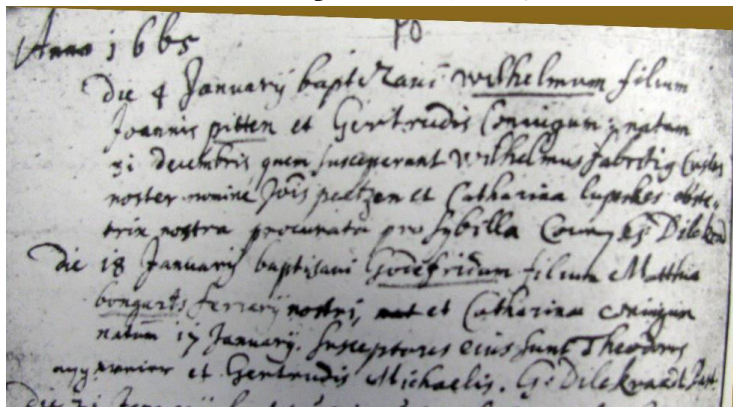 Anno 1665
die 4 Januarij baptizavi Wilhelmum filium
Joannis pitten et Gertrudis Conjugum; natum
31 decembris quem susceperunt Wilhelmus fabritig Custos
noster nomine Jois peetzen et Catharina luperkes obste,
trix nostra procurata pro Sybilla
die 18 Januarij baptisavi Godefridum filium Matthia
bongarts ferrarij nostri, et Catharinae coniugum
natum 17 January. Susceptores eius sunt Theodorus
et Gertrudis Michaelis. G: Dilekraedt Past.